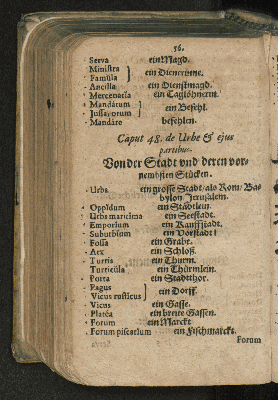 56.
Serva ein Magd.
Ministra }
Famŭla } ein Dienerinne.
Ancilla ein Dienstmagd.
Mercenaria ein Taglöhnerin.
Mandátum }
Jussarorum } ein Befehl.
Mandáre befehlen.
Caput 48. de Urbe & ejus
partibus.
Von der Stadt vnd deren vor-
nembsten Stücken.
Urbs ein grosse Stadt/ als Rom/ Ba-
bylon/ Jerusalem.
Oppĭdum ein Städtlein.
Urbs maritima ein Seestadt.
Emporium ein Kauffstadt.
Suburbĭum ein Vorstadt/
Fossa ein Grabe.
Arx ein Schloß.
Turris ein Thurm.
Turricŭla ein Thürmlein.
Porta ein Stadtthor.
Pagus }
Vicus rusticus } ein Dorff.
Vicus ein Gasse.
Platéa ein breite Gassen.
Forum ein Marckt
Forum piscarĭum ein Fischmarckt.
Forum